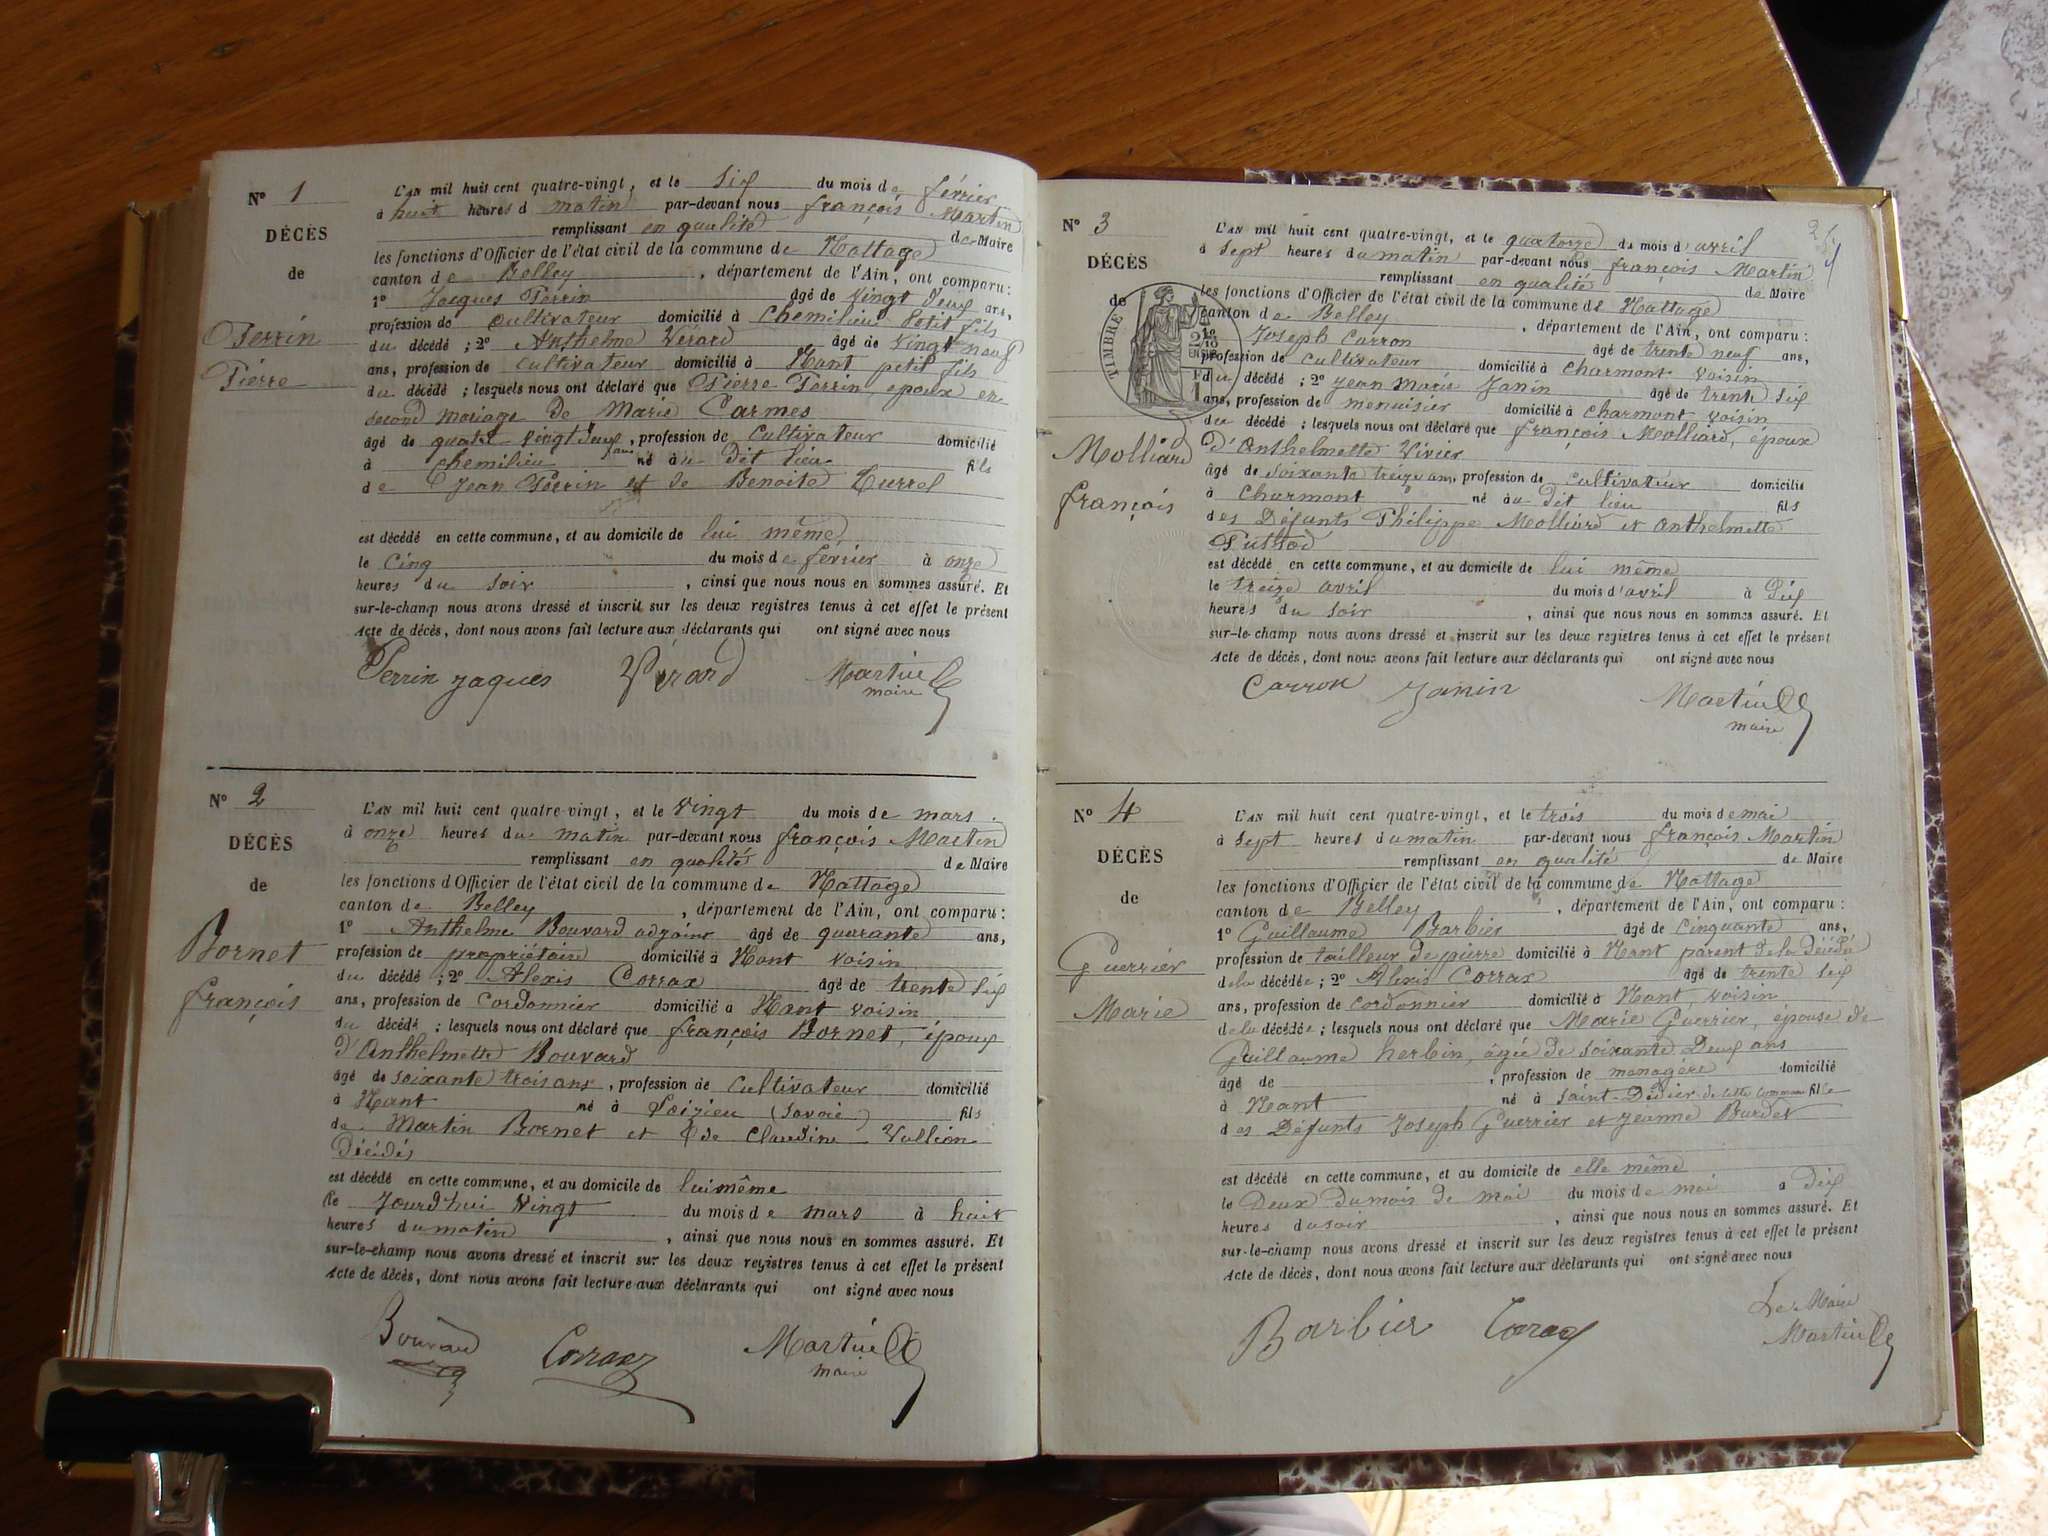 N° 1
DÉCÈS
de
Perrin
Pierre
L'AN mil huit cent quatre-vingt, et le six du mois de février
à huit heures d matin par-devant nous françois Martin
remplissant en qualité de Maire
les fonctions d'Officier de l'état civil de la commune de Nattage
canton de Belley, département de l'Ain, ont comparu :
1° Jacques Perrin âgé de vingt deux ans,
profession de cultivateur domicilié à Chemilieu Petit fils
du décédé ; 2° Anthelme Vérard âgé de vingt neuf
ans, profession de cultivateur domicilié à Nant petit fils
du décédé ; lesquels nous ont déclaré que Pierre Perrin, époux en
second mariage de Marie Carmes
âgé de quatre vingt deux ans, profession de cultivateur domicilié
à chemilieu né à u dit lieu fils
de Jean Perrin et de Benoite Currel
est décédé en cette commune, et au domicile de lui même
le cinq du mois de février à onze
heures du soir, ainsi que nous nous en sommes assuré. Et
sur-le-champ nous avons dressé et inscrit sur les deux registres tenus à cet effet le présent
Acte de décès, dont nous avons fait lecture aux déclarants qui ont signé avec nous
Perrin jaques Vérard Martin
maire
N° 2
DÉCÈS
de
Bornet
françois
L'AN mil huit cent quatre-vingt, et le vingt du mois de mars
à onze heures du matin par-devant nous françois Martin
remplissant en qualité de Maire
les fonctions d'Officier de l'état civil de la commune de Nattage
canton de Belley, département de l'Ain, ont comparu :
1° Anthelme Bouvard adjoint âgé de quarante ans,
profession de propriétaire domicilié à Nant voisin
du décédé ; 2° Alexis Corrax âgé de trente six
ans, profession de cordonnier domicilié à Nant voisin
du décédé ; lesquels nous ont déclaré que françois Bornet, époux
d'Anthelmette Bouvard
âgé de soixante trois ans, profession de cultivateur domicilié
à Nant né à Loizieu (Savoie) fils
de Martin Bornet et de Claudine Vullion
Décédés
est décédé en cette commune, et au domicile de lui même
le Jourd'hui vingt du mois de mars à huit
heures du matin, ainsi que nous nous en sommes assuré. Et
sur-le-champ nous avons dressé et inscrit sur les deux registres tenus à cet effet le présent
Acte de décès, dont nous avons fait lecture aux déclarants qui ont signé avec nous
Bouvard Corrax Martin
maire
N° 3
DÉCÈS
de
TIMBRE
Molliard
françois
L'AN mil huit cent quatre-vingt, et le quatorze du mois d'avril
à sept heures du matin par-devant nous françois Martin
remplissant en qualité de Maire
les fonctions d'Officier de l'état civil de la commune de Nattage
canton de Belley, département de l'Ain, ont comparu :
1° Joseph Carron âgé de trente neuf ans,
profession de cultivateur domicilié à Charmont voisin
du décédé ; 2° jean marie Janin âgé de trente six
ans, profession de menuisier domicilié à charmont voisin
du décédé ; lesquels nous ont déclaré que françois Molliard, époux
D'Anthelmette Vivier
âgé de soixante treize ans, profession de cultivateur domicilié
à Charmont né à u dit lieu fils
des Défunts Philippe Molliard et Anthelmette
est décédé en cette commune, et au domicile de lui même
le treize avril du mois d'avril à Dix
heures du soir, ainsi que nous nous en sommes assuré. Et
sur-le-champ nous avons dressé et inscrit sur les deux registres tenus à cet effet le présent
Acte de décès, dont nous avons fait lecture aux déclarants qui ont signé avec nous
Carron Janin Martin
maire
N° 4
DÉCÈS
de
Guerrier
Marie
L'AN mil huit cent quatre-vingt, et le trois du mois de mai
à sept heures du matin par-devant nous françois Martin
remplissant en qualité de Maire
les fonctions d'Officier de l'état civil de la commune de Nattage
canton de Belley, département de l'Ain, ont comparu :
1° Guillaume Barbier âgé de cinquante ans,
profession de tailleur de pierre domicilié à Nant parent de la Décédé
de la décédée ; 2° Alexis Corrax âgé de trente six
ans, profession de cordonnier domicilié à Nant, voisin
de la décédée ; lesquels nous ont déclaré que Marie Guerrier, épouse de
Guillaume herbin, âgée de soixante Deux ans
âgé de , profession de managère domicilié
à Nant né à Saint-Dédier de cette commune fille
des Défunts Joseph Guerrier et Jeanne Burdet
est décédé en cette commune, et au domicile de elle même
le Deux Du mois de mai du mois de mai a Dix
heures du soir, ainsi que nous nous en sommes assuré. Et
sur-le-champ nous avons dressé et inscrit sur les deux registres tenus à cet effet le présent
Acte de décès, dont nous avons fait lecture aux déclarants qui ont signé avec nous
Barbier Corrax
Le Maire
Martin